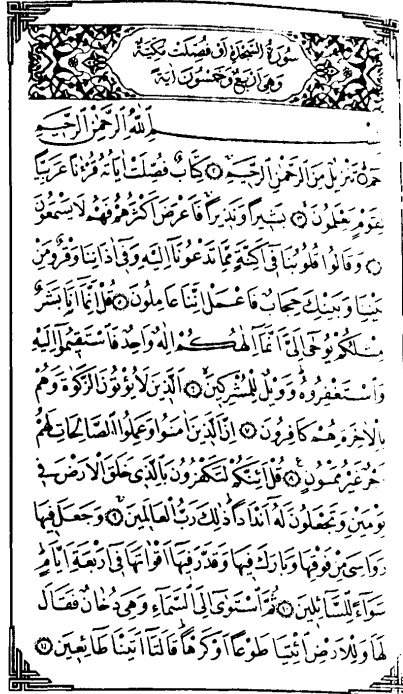 سُورَةُ السَّجْدَةِ اَوْ فُصِّلَتْ مَكِّيَّةٌ
وَهِيَ اَرْبَعٌ وَخَمْسُونَ اٰيَةً
بِسْمِ اللّٰهِ الرَّحْمٰنِ الرَّحِيمِ
حٰمٓ ۝١ تَنْزِيلٌ مِنَ الرَّحْمٰنِ الرَّحِيمِ ۝٢ كِتَابٌ فُصِّلَتْ اٰيَاتُهُ قُرْاٰنًا عَرَبِيًّا
لِقَوْمٍ يَعْلَمُونَ ۝٣ بَشِيرًا وَنَذِيرًا فَاَعْرَضَ اَكْثَرُهُمْ فَهُمْ لَا يَسْمَعُونَ
۝٤ وَقَالُوا قُلُوبُنَا فِي اَكِنَّةٍ مِمَّا تَدْعُونَا اِلَيْهِ وَفِي اٰذَانِنَا وَقْرٌ وَمِنْ
بَيْنِنَا وَبَيْنِكَ حِجَابٌ فَاعْمَلْ اِنَّنَا عَامِلُونَ ۝٥ قُلْ اِنَّمَا اَنَا بَشَرٌ
مِثْلُكُمْ يُوحٰى اِلَيَّ اَنَّمَا اِلٰهُكُمْ اِلٰهٌ وَاحِدٌ فَاسْتَقِيمُوا اِلَيْهِ
وَاسْتَغْفِرُوهُ وَوَيْلٌ لِلْمُشْرِكِينَ ۝٦ اَلَّذِينَ لَا يُؤْتُونَ الزَّكٰوةَ وَهُمْ
بِالْاٰخِرَةِ هُمْ كَافِرُونَ ۝٧ اِنَّ الَّذِينَ اٰمَنُوا وَعَمِلُوا الصَّالِحَاتِ لَهُمْ
اَجْرٌ غَيْرُ مَمْنُونٍ ۝٨ قُلْ اَئِنَّكُمْ لَتَكْفُرُونَ بِالَّذِي خَلَقَ الْاَرْضَ فِي
يَوْمَيْنِ وَتَجْعَلُونَ لَهُ اَنْدَادًا ذٰلِكَ رَبُّ الْعَالَمِينَ ۝٩ وَجَعَلَ فِيهَا
رَوَاسِيَ مِنْ فَوْقِهَا وَبَارَكَ فِيهَا وَقَدَّرَ فِيهَا اَقْوَاتَهَا فِي اَرْبَعَةِ اَيَّامٍ
سَوَاءً لِلسَّائِلِينَ ۝١٠ ثُمَّ اسْتَوٰى اِلَى السَّمَاءِ وَهِيَ دُخَانٌ فَقَالَ
لَهَا وَلِلْاَرْضِ ائْتِيَا طَوْعًا اَوْ كَرْهًا قَالَتَا اَتَيْنَا طَائِعِينَ ۝١١